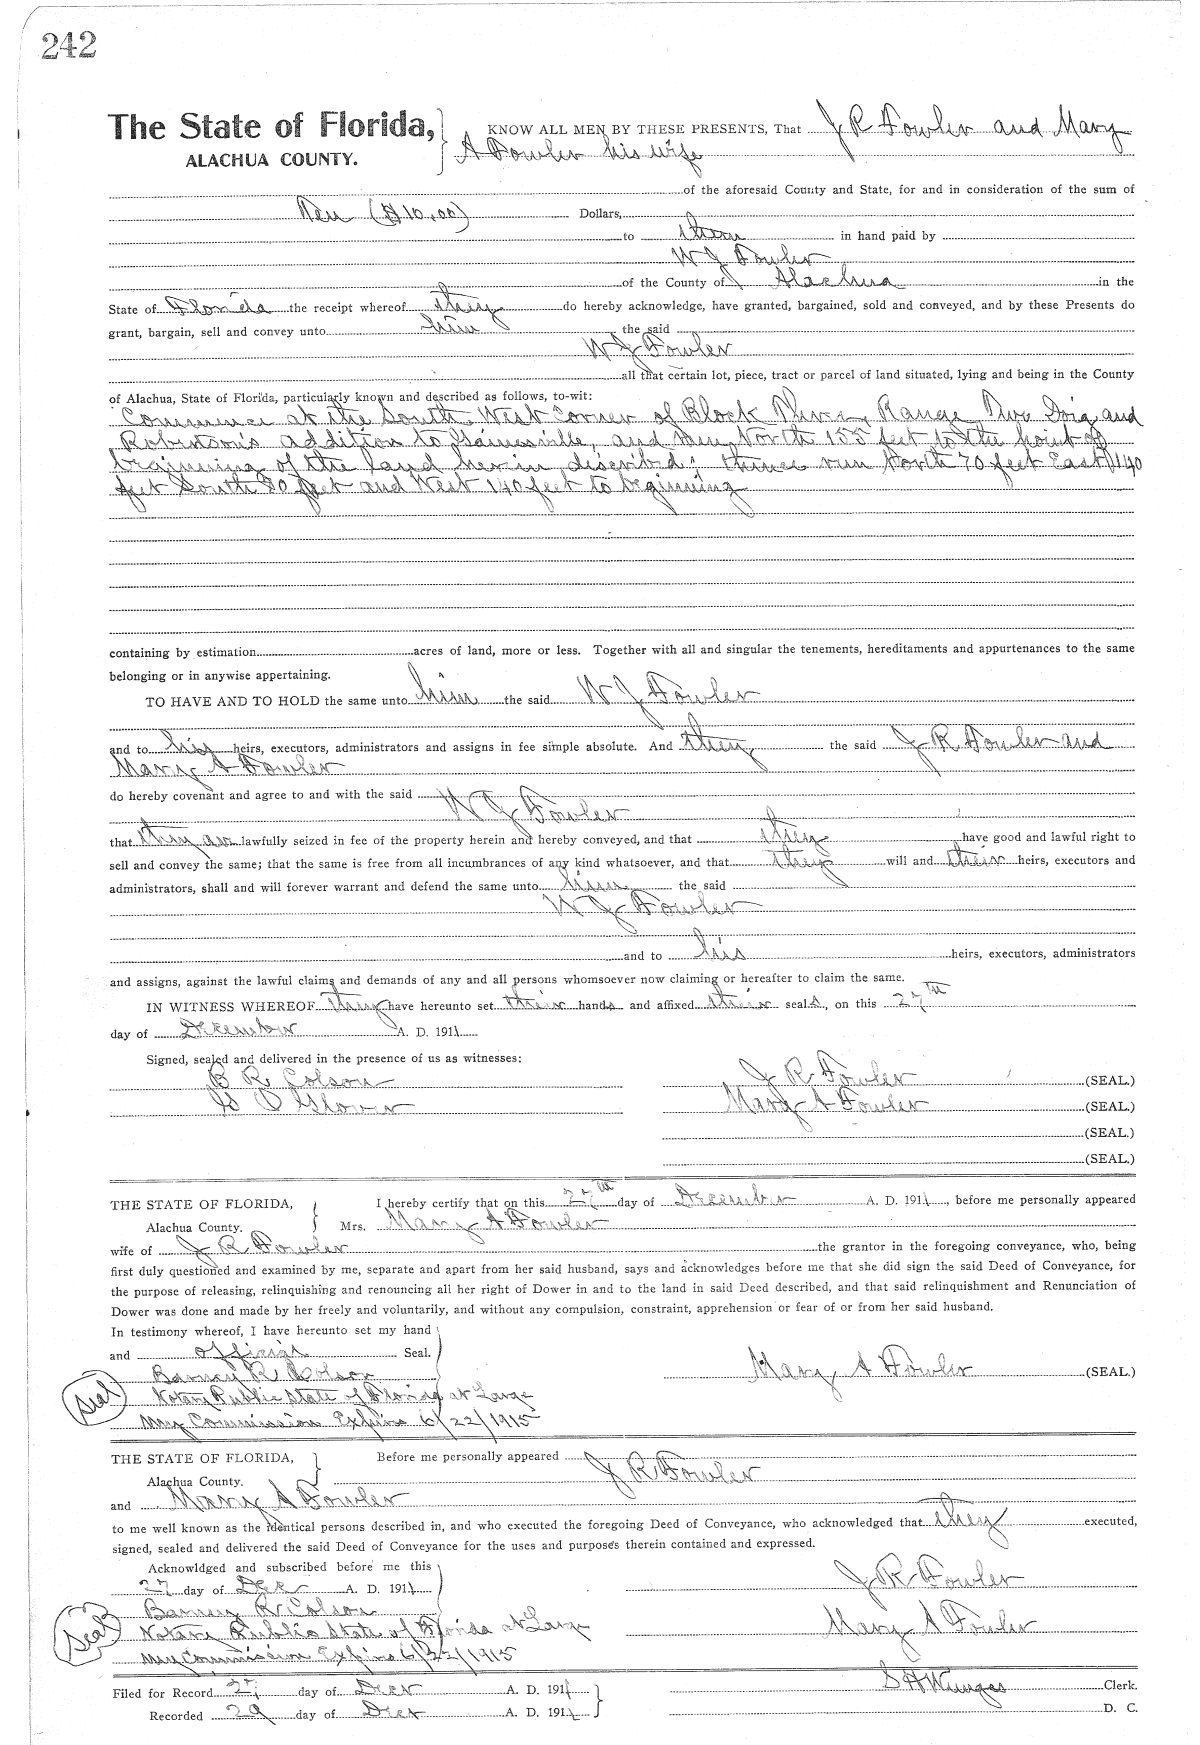 242
The State of Florida, KNOW ALL MEN BY THESE PRESENTS, That J R Fowler and Mary
ALACHUA COUNTY. A Fowler his wife
of the aforesaid County and State, for and in consideration of the sum of
Ten ($10.00) Dollars,
to them in hand paid by
W J Fowler
of the County of Alachua in the
State of Florida the receipt whereof they do hereby acknowledge, have granted, bargained, sold and conveyed, and by these Presents do
grant, bargain, sell and convey unto him the said
W J Fowler
all that certain lot, piece, tract or parcel of land situated, lying and being in the County
of Alachua, State of Florida, particularly known and described as follows, to-wit:
Commence at the South West Corner of Block Three Range Two Doig and
Robertson's addition to Gainesville, and run North 155 feet to the point of
beginning of the land herein discribed; thence run North 70 feet East 140
feet South 70 feet and West 140 feet to beginning
containing by estimation acres of land, more or less. Together with all and singular the tenements, hereditaments and appurtenances to the same
belonging or in anywise appertaining.
TO HAVE AND TO HOLD the same unto him the said W J Fowler
and to his heirs, executors, administrators and assigns in fee simple absolute. And they the said J R Fowler and
Mary A Fowler
do hereby covenant and agree to and with the said W J Fowler
that they are lawfully seized in fee of the property herein and hereby conveyed, and that they have good and lawful right to
sell and convey the same; that the same is free from all incumbrances of any kind whatsoever, and that they will and their heirs, executors and
administrators, shall and will forever warrant and defend the same unto him the said
W J Fowler
and to his heirs, executors, administrators
and assigns, against the lawful claims and demands of any and all persons whomsoever now claiming or hereafter to claim the same.
IN WITNESS WHEREOF they have hereunto set their hands and affixed their seals, on this 27th
day of December A. D. 1911
Signed, sealed and delivered in the presence of us as witnesses:
B R Colson J R Fowler (SEAL.)
Glover Mary A Fowler (SEAL.)
(SEAL.)
(SEAL.)
THE STATE OF FLORIDA, I hereby certify that on this 27th day of December A. D. 1911, before me personally appeared
Alachua County. Mrs. Mary A Fowler
wife of J R Fowler the grantor in the foregoing conveyance, who, being
first duly questioned and examined by me, separate and apart from her said husband, says and acknowledges before me that she did sign the said Deed of Conveyance, for
the purpose of releasing, relinquishing and renouncing all her right of Dower in and to the land in said Deed described, and that said relinquishment and Renunciation of
Dower was done and made by her freely and voluntarily, and without any compulsion, constraint, apprehension or fear of or from her said husband.
In testimony whereof, I have hereunto set my hand
and official Seal.
Barney R Colson Mary A Fowler (SEAL.)
Seal Notary Public State of Florida at Large
My Commission Expires 6/22/1915
THE STATE OF FLORIDA, Before me personally appeared J R Fowler
Alachua County.
and Mary A Fowler
to me well known as the identical persons described in, and who executed the foregoing Deed of Conveyance, who acknowledged that they executed,
signed, sealed and delivered the said Deed of Conveyance for the uses and purposes therein contained and expressed.
Acknowldged and subscribed before me this
27 day of Dec A. D. 1911 J R Fowler
Barney R Colson
Seal Notary Public State of Florida at Large Mary A Fowler
My Commission Expires 6/22/1915
Filed for Record 27 day of Dec A. D. 1911 S H Wienges Clerk.
Recorded 29 day of Dec A. D. 1911 D. C.